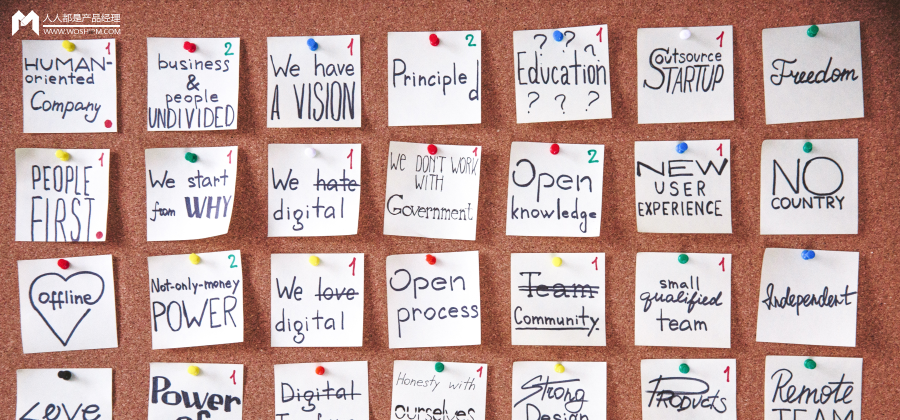 人人都是产品经理
WWW.WOSHIPM.COM
1
HUMAN-
oriented
Company
2
business
&
people
UNDIVIDED
1
We have
A VISION
2
Principled
1
? ? ?
Education
? ? ?
1
Outsource
STARTUP
Freedom
PEOPLE
FIRST
1
We start
from WHY
1
We hate
digital
1
We DON'T WORK
WITH
Government
2
Open
knowledge
1
NEW
USER
EXPERIENCE
NO
COUNTRY
offline
2
Not-only-money
POWER
1
We love
digital
Open
process
1
Team
Community
1
small
qualified
team
Independent
Love
1
Power
of
Digital
1
Honesty with
ourselves
Strong
Design
1
Products
Remote
TEAM